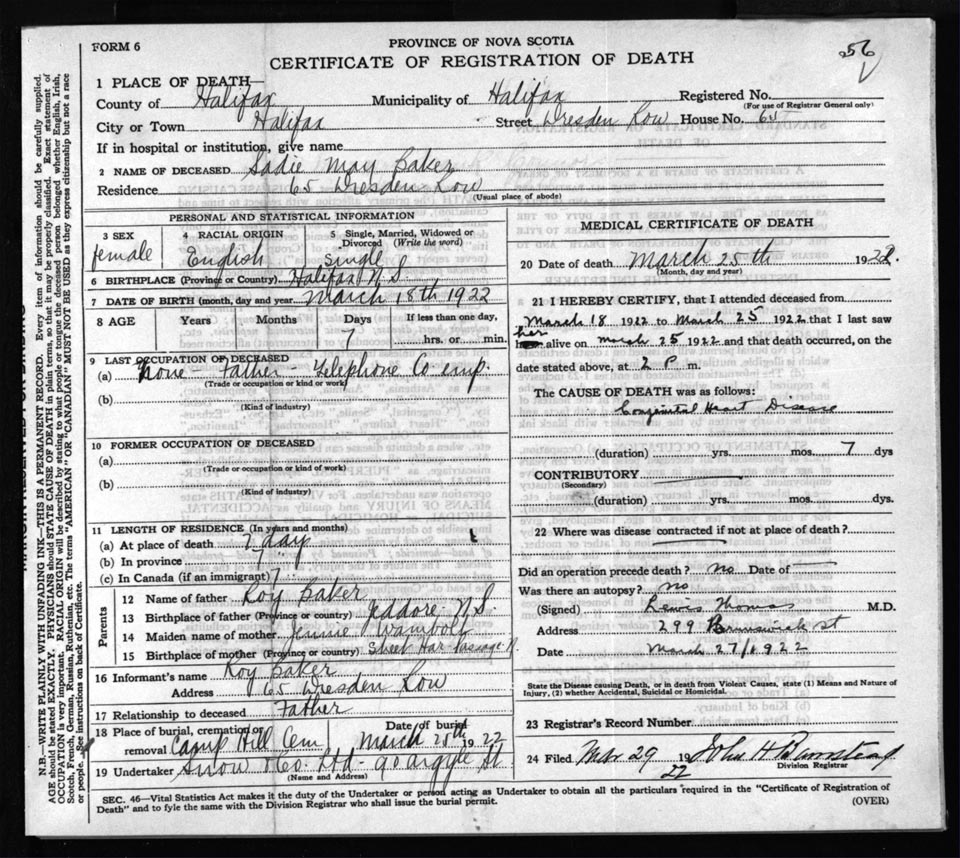 FORM 6
PROVINCE OF NOVA SCOTIA
56
CERTIFICATE OF REGISTRATION OF DEATH
1 PLACE OF DEATH—
County of Halifax Municipality of Halifax Registered No.
(For use of Registrar General only)
City or Town Halifax Street Dresden Row House No. 65
If in hospital or institution, give name
2 NAME OF DECEASED Sadie May Baker
Residence 65 Dresden Row
(Usual place of abode)
PERSONAL AND STATISTICAL INFORMATION
3 SEX 4 RACIAL ORIGIN 5 Single, Married, Widowed or
Divorced (Write the word)
female English Single
6 BIRTHPLACE (Province or Country) Halifax N.S.
7 DATE OF BIRTH (month, day and year March 18th 1922
8 AGE Years Months Days If less than one day,
7 hrs. or min.
9 LAST OCCUPATION OF DECEASED
(a) None - Father - Telephone Co emp.
(Trade or occupation or kind or work)
(b)
(Kind of industry)
10 FORMER OCCUPATION OF DECEASED
(a)
(Trade or occupation or kind of work)
(b)
(Kind of industry)
11 LENGTH OF RESIDENCE (In years and months)
(a) At place of death 7 day
(b) In province 7
(c) In Canada (if an immigrant) 7
Parents
12 Name of father Roy Baker
13 Birthplace of father (Province or country) Jeddore N.S.
14 Maiden name of mother Jennie Wambolt
15 Birthplace of mother (Province or country) Sheet Har Passage N
16 Informant's name Roy Baker
Address 65 Dresden Row
17 Relationship to deceased Father
18 Place of burial, cremation or Date of burial
removal Camp Hill Cem March 1922
19 Undertaker Snow & Co. Ltd - 90 Argyle St
(Name and Address)
MEDICAL CERTIFICATE OF DEATH
20 Date of Death March 25th 1922.
(Month, day and year)
21 I HEREBY CERTIFY, that I attended deceased from
March 18 1922 to March 25 1922 that I last saw
her alive on March 25 1922 and that death occurred, on the
date stated above, at 2 P. m.
The CAUSE OF DEATH was as follows:
Congenital Heart Disease
(duration) yrs. mos. 7 dys
CONTRIBUTORY
(Secondary)
(duration) yrs. mos. dys.
22 Where was disease contracted if not at place of death?
Did an operation precede death? No Date of
Was there an autopsy? No
(Signed) Lewis Thomas M.D.
Address 299 Brunswick St
Date March 27/1922
State the Disease causing Death, or in death from Violent Causes, state (1) Means and Nature of
Injury, (2) whether Accidental, Suicidal or Homicidal.
23 Registrar's Record Number
24 Filed Mar 29 1922 John H Barnstead
Division Registrar
SEC. 46—Vital Statistics Act makes it the duty of the Undertaker or person acting as Undertaker to obtain all the particulars required in the "Certificate of Registration of
Death" and to fyle the same with the Division Registrar who shall issue the burial permit.
(OVER)
N.B.—WRITE PLAINLY WITH UNFADING INK—THIS IS A PERMANENT RECORD. Every item of information should be carefully supplied.
AGE should be stated EXACTLY. PHYSICIANS should STATE CAUSE OF DEATH in plain terms, so that it may be properly classified. Exact statement of
OCCUPATION is very important. RACIAL ORIGIN will be described by stating to what people or tongue the deceased person belonged whether English, Irish,
Scotch, French, German, Russian, Ruthenian, etc. The terms "AMERICAN" OR "CANADIAN" MUST NOT BE USED as they express citizenship but not a race
or people. See instructions on back of Certificate.